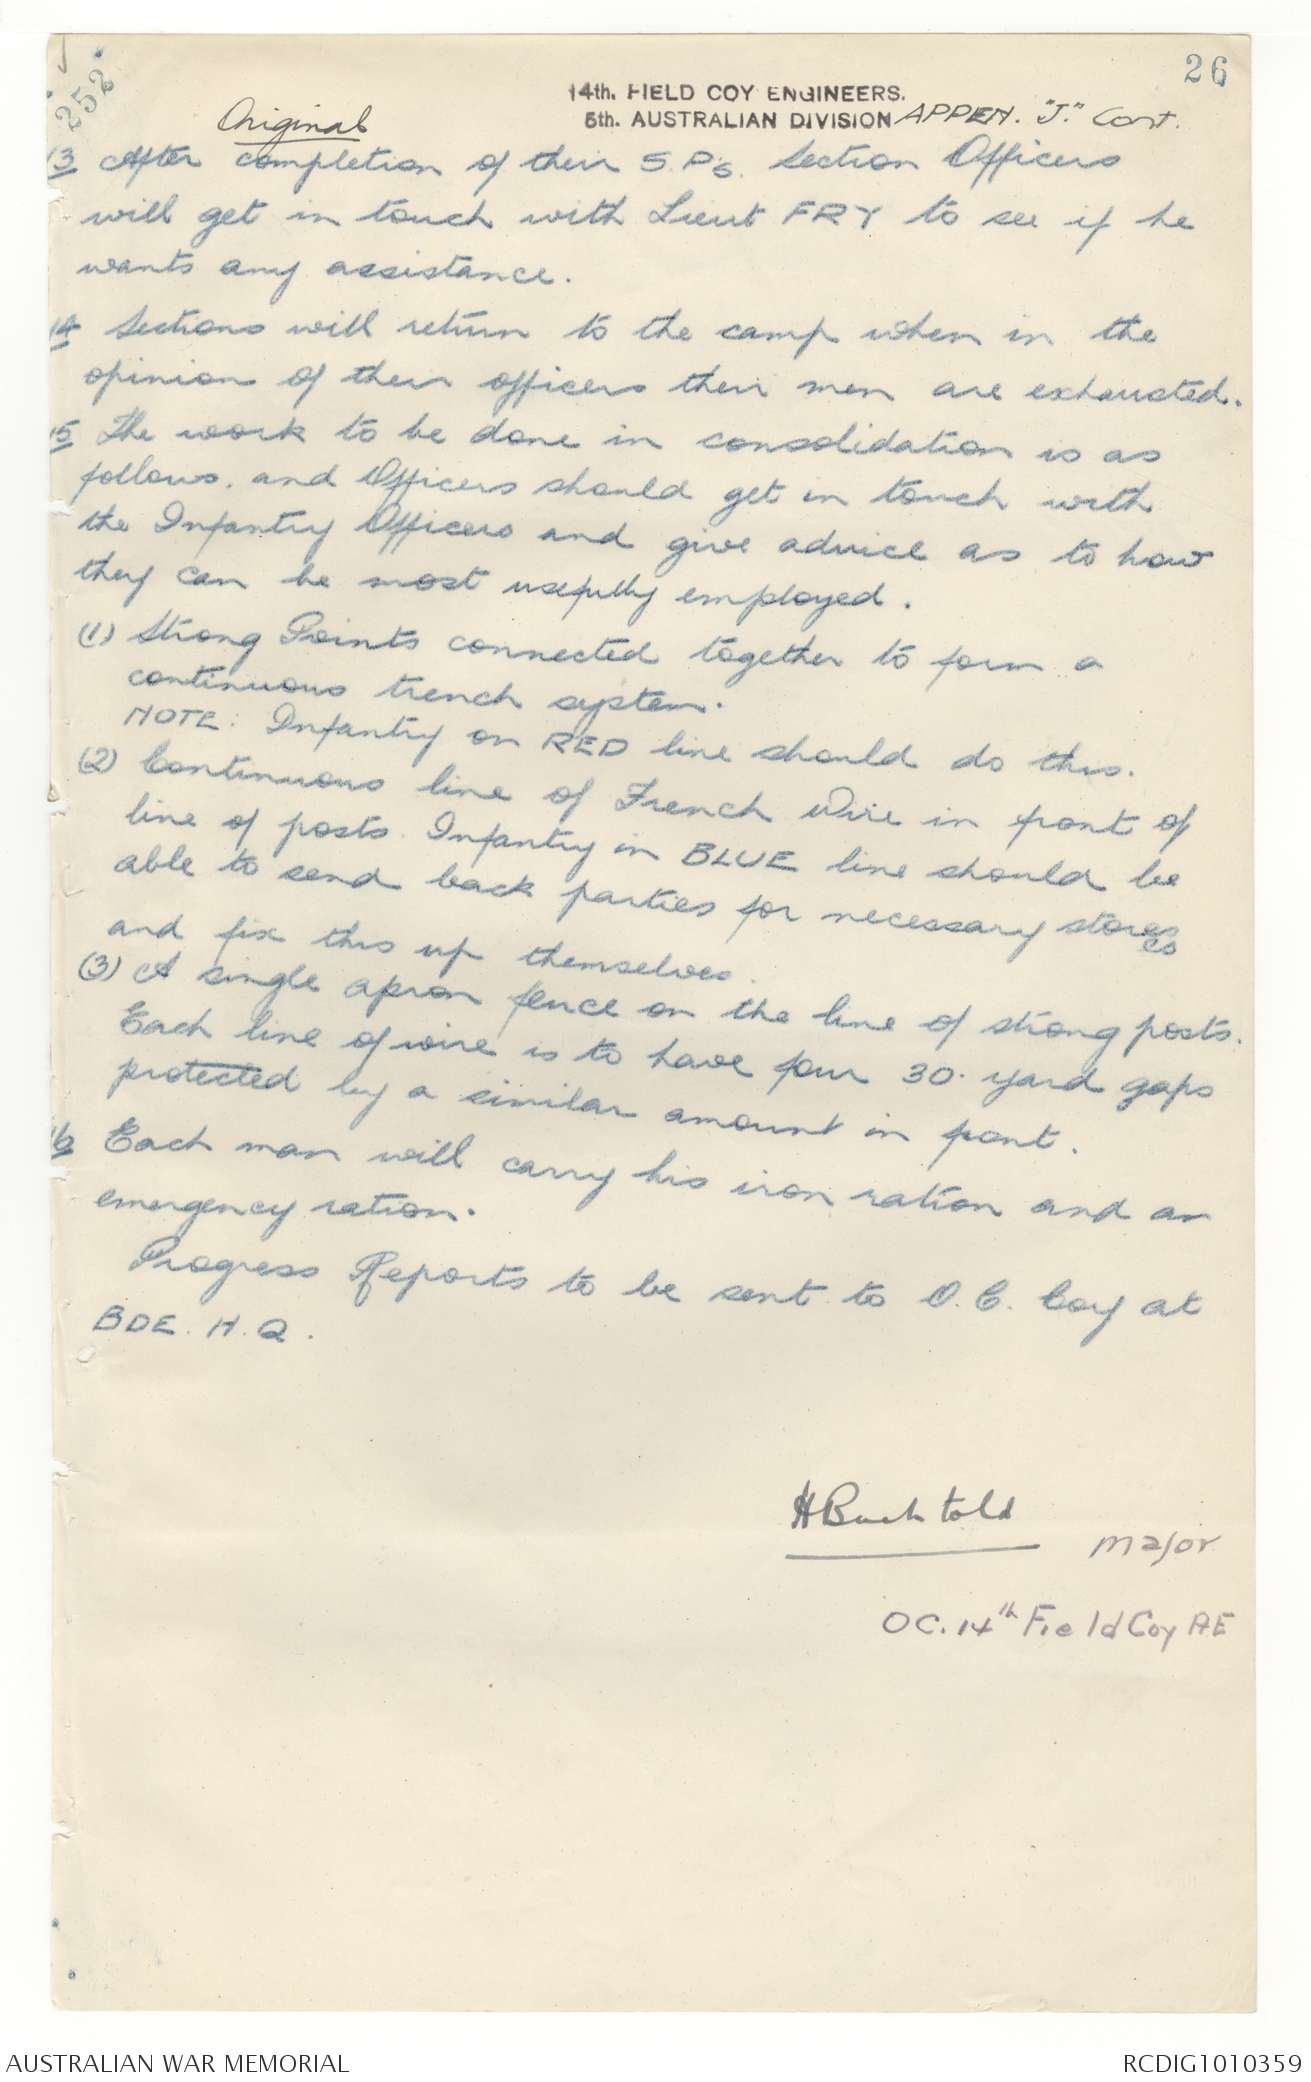 26
252
14th. FIELD COY ENGINEERS.
Original
5th. AUSTRALIAN DIVISION APPEN. "J." Cont.
13 After completion of their S.Ps. Section Officers
will get in touch with Lieut FRY to see if he
wants any assistance.
14 Sections will return to the camp when in the
opinion of their officers their men are exhausted.
15 The work to be done in consolidation is as
follows. and Officers should get in touch with
the Infantry Officers and give advice as to how
they can be most usefully employed.
(1) Strong Points connected together to form a
continuous trench system.
NOTE: Infantry on RED line should do this.
(2) Continuous line of French Wire in front of
line of posts. Infantry in BLUE line should be
able to send back parties for necessary stores
and fix this up themselves.
(3) A single apron fence on the line of strong posts.
Each line of wire is to have four 30. yard gaps
protected by a similar amount in front.
16 Each man will carry his iron ration and an
emergency ration.
Progress Reports to be sent to O.C. Coy at
BDE. H.Q.
H Bachtold
Major
OC. 14th Field Coy AE
AUSTRALIAN WAR MEMORIAL
RCDIG1010359